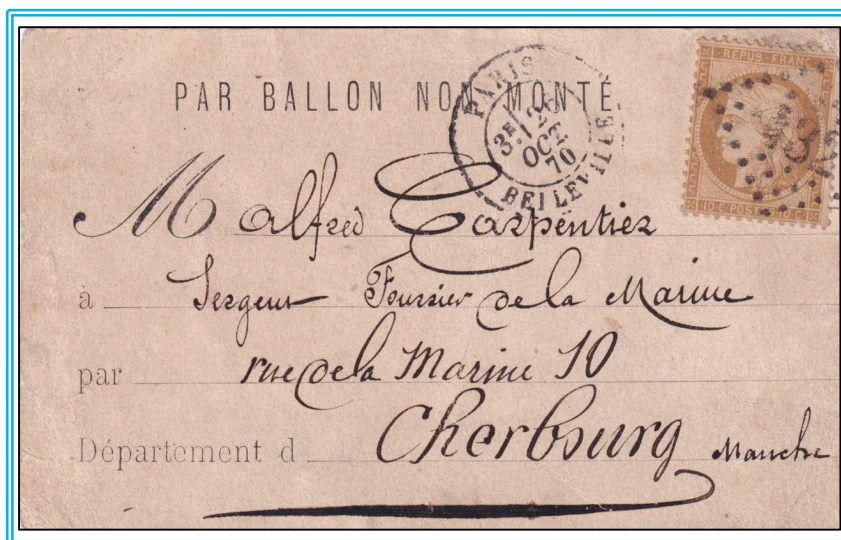 PAR BALLON NON MONTÉ.
PARIS
3E / 2
OCT.
70
BELLEVILLE
REPUB. FRANC.
10 C. POSTE 10 C.
M Alfred Carpentier
à Sergent Fourrier de la Marine
par rue de la Marine 10
Département d Cherbourg Manche